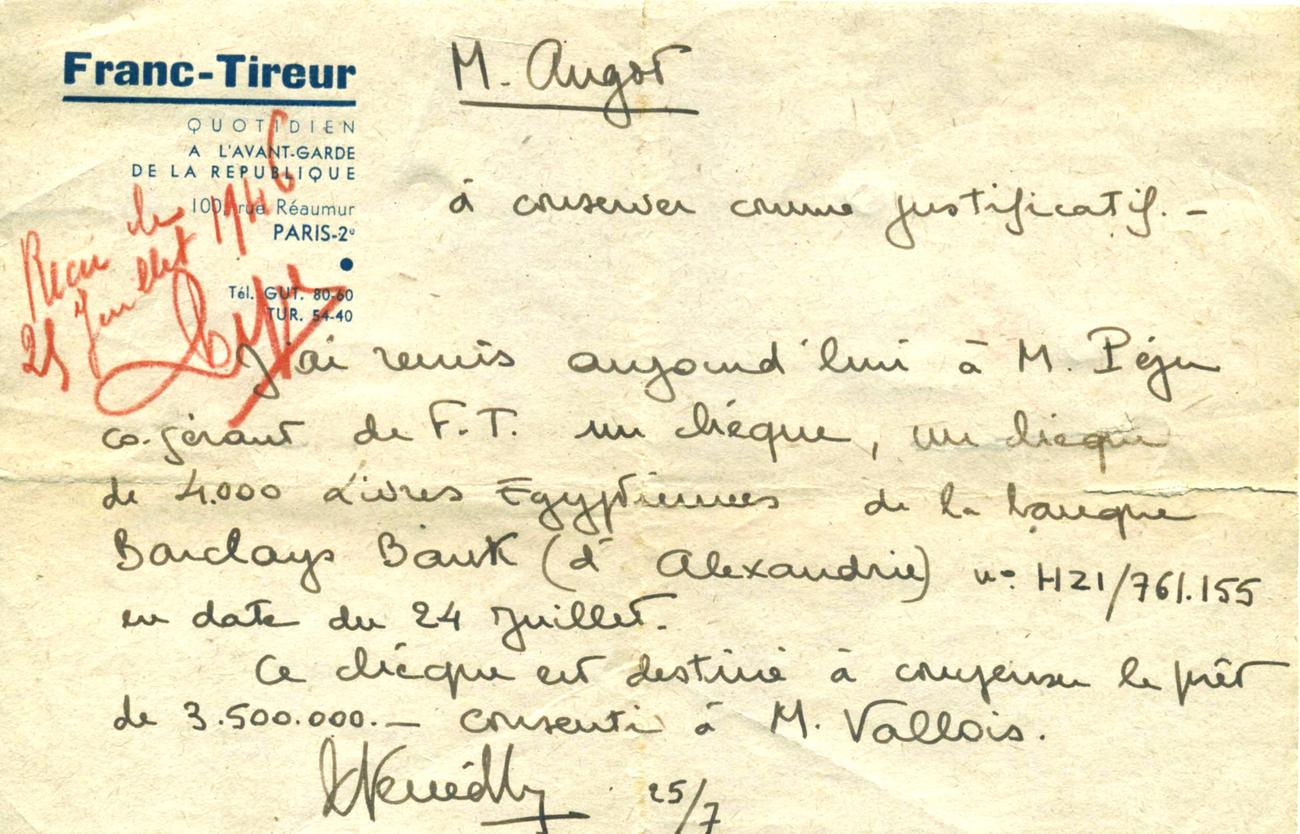 Franc-Tireur
QUOTIDIEN
A L'AVANT-GARDE
DE LA REPUBLIQUE
100, rue Réaumur
PARIS-2e
Tél. GUT. 80-60
TUR. 54-40
Reçu le
25 Juillet 1946
M. Angot
à conserver comme justificatif. -
J'ai remis aujourd'hui à M. Péju
co-gérant de F.T. un chèque, un chèque
de 4.000 Livres Egyptiennes de la banque
Barclays Bank (d'Alexandrie) n° H21/761.155
en date du 24 Juillet.
Ce chèque est destiné à compenser le prêt
de 3.500.000.— consenti à M. Vallois.
25/7